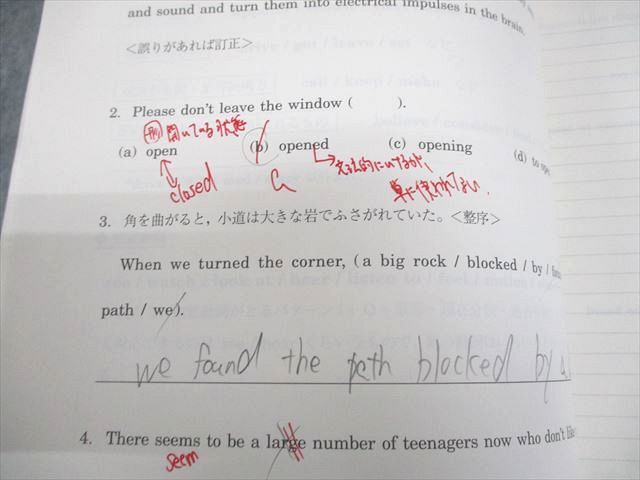 and sound and turn them into electrical impulses in the brain.
<誤りがあれば訂正>
2. Please don't leave the window (　　).
形 開いている状態
(a) open (b) opened (c) opening (d) to open
closed
a
文法的にいけるが、
単に使われてない。
3. 角を曲がると，小道は大きな岩でふさがれていた。<整序>
When we turned the corner, (a big rock / blocked / by /
path / we).
we found the path blocked by a
4. There seems to be a large number of teenagers now who don't like
seem